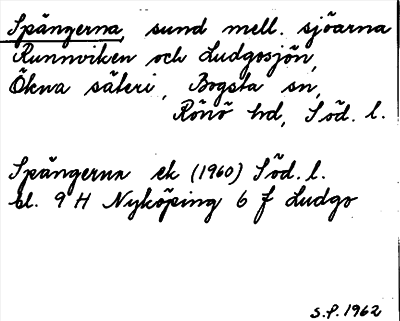 Spängerna, sund mell. sjöarna
Runnviken och Ludgosjön,
Ökna säteri, Bogsta sn,
Rönö hd, Söd. l.
Spängerna ek (1960) Söd. l.
bl. 9 H Nyköping 6 f Ludgo
S.P. 1962